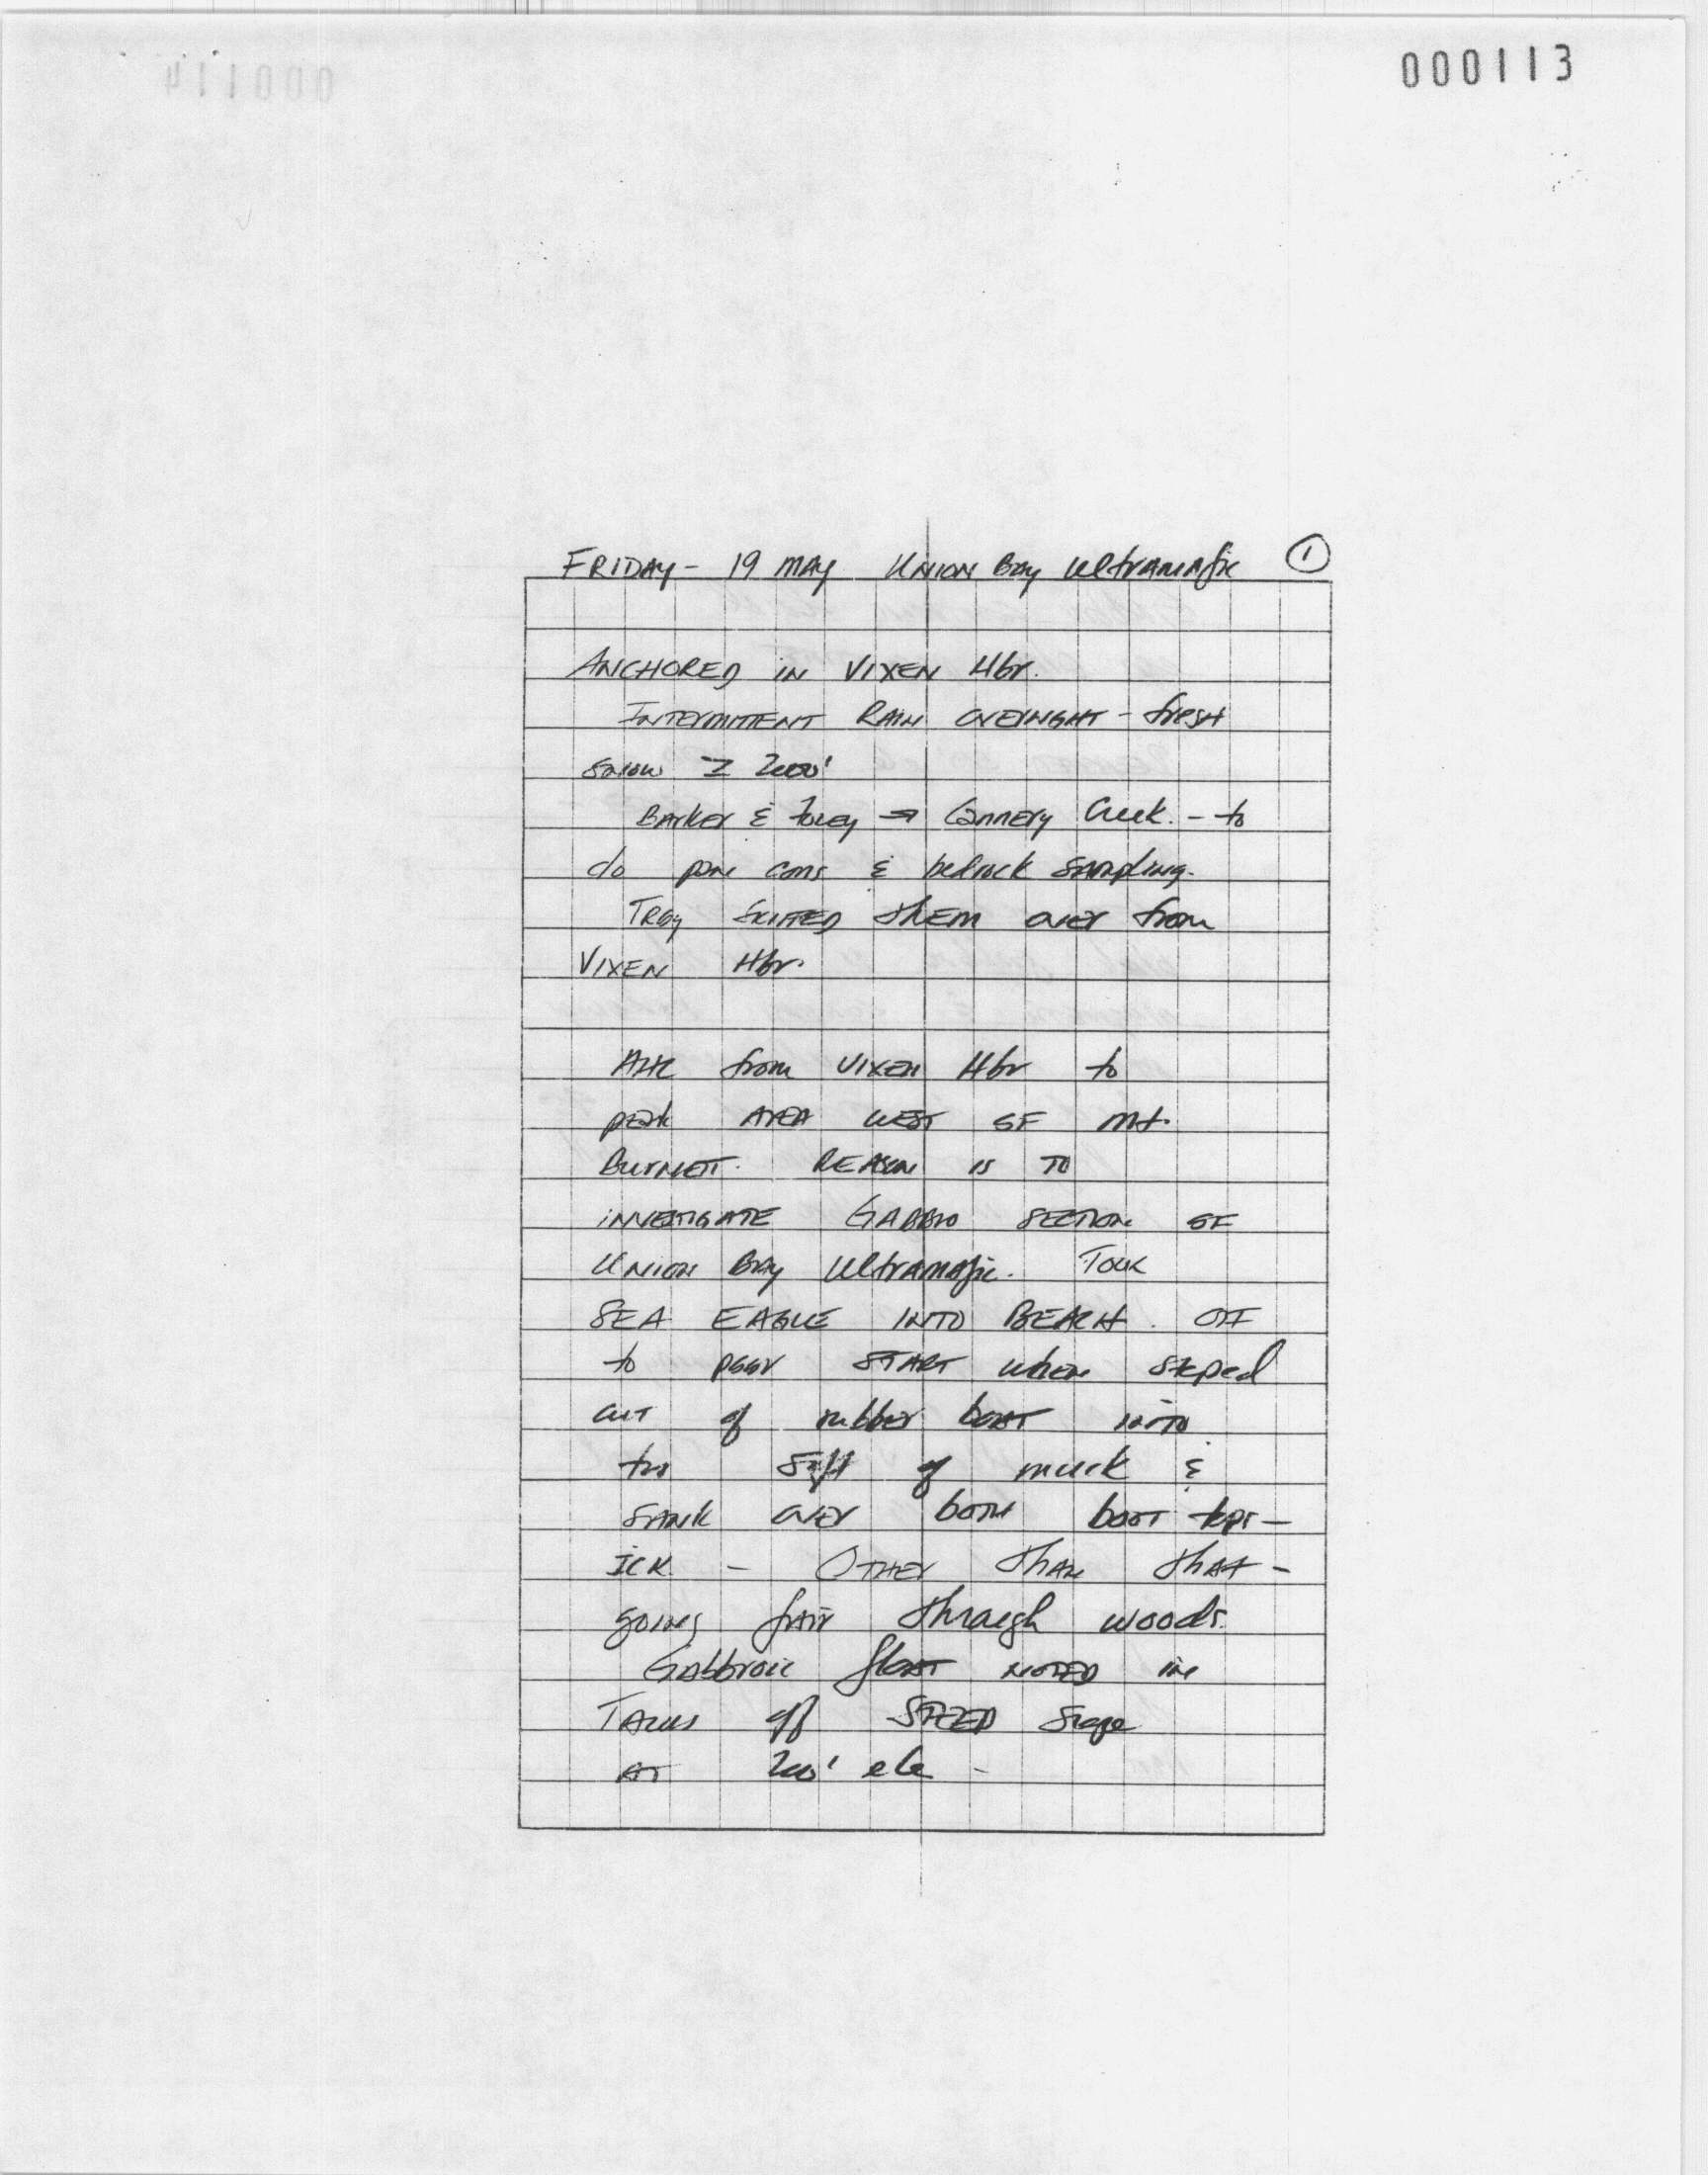 000113
FRIDAY - 19 MAY UNION BAY ultramafic ①
ANCHORED IN VIXEN Hbr.
INTERMITTENT RAIN OVERNIGHT - fresh
snow 2000'
Barker & Foley → Cannery Creek. - to
do pan cons & bedrock sampling.
TROY SKIFFED them over from
VIXEN Hbr.
from VIXEN Hbr to
peak AREA WEST OF Mt.
BURNETT. REASON IS TO
INVESTIGATE GABBRO SECTION OF
UNION BAY Ultramafic. TOOK
SEA EAGLE INTO BEACH. OFF
to poor START when steped
OUT of rubber boat INTO
of muck &
SANK over both boot tops -
ICK. - OTHER than that -
going fair through woods.
Gabbroic float NOTED in
TALUS off STEEP Slope
AT 200' ele -